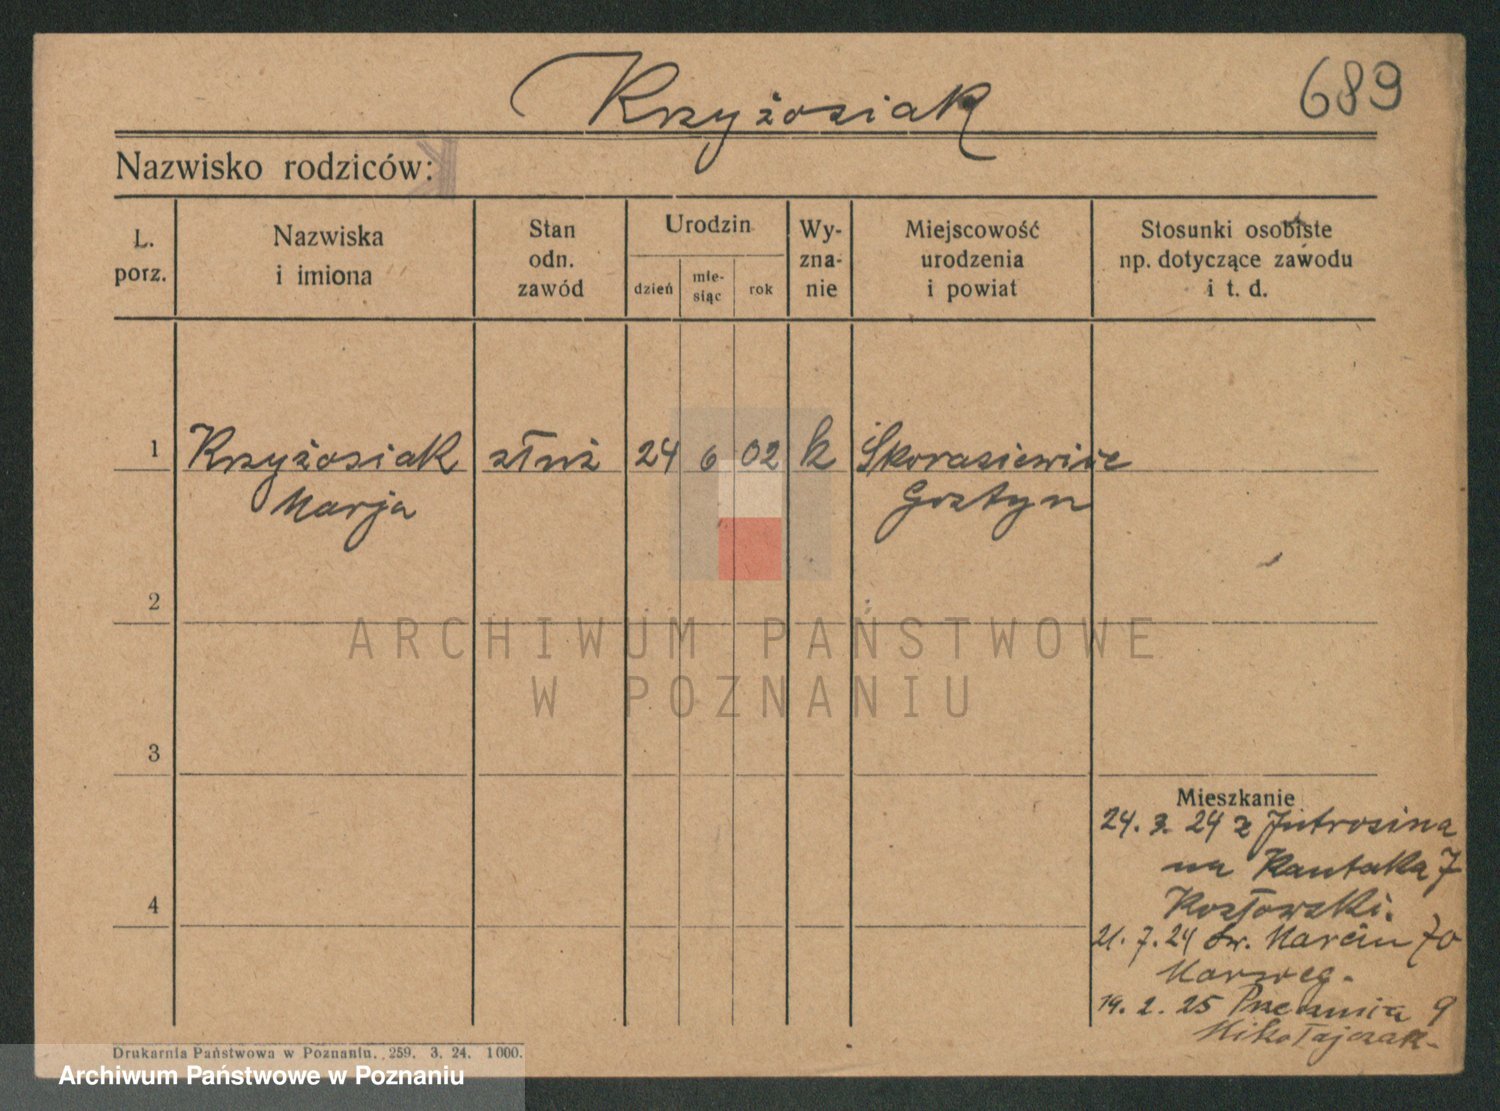 Krzyżosiak
689
Nazwisko rodziców:
L. porz.
Nazwiska i imiona
Stan odn. zawód
Urodzin
dzień
mie-siąc
rok
Wy-zna-nie
Miejscowość urodzenia i powiat
Stosunki osobiste np. dotyczące zawodu i t. d.
1 Krzyżosiak służ 24 6 02 k Skoraszewice
Marja Gostyn
2
ARCHIWUM PAŃSTWOWE
W POZNANIU
3
Mieszkanie
24. 3. 24 z Jutrosina
na Kantaka 7
Kozłowski.
4
21. 7. 24 Św. Marcin 70
19. 2. 25 9
Mikołajczak
Drukarnia Państwowa w Poznaniu. 259. 3. 24. 1000.
Archiwum Państwowe w Poznaniu